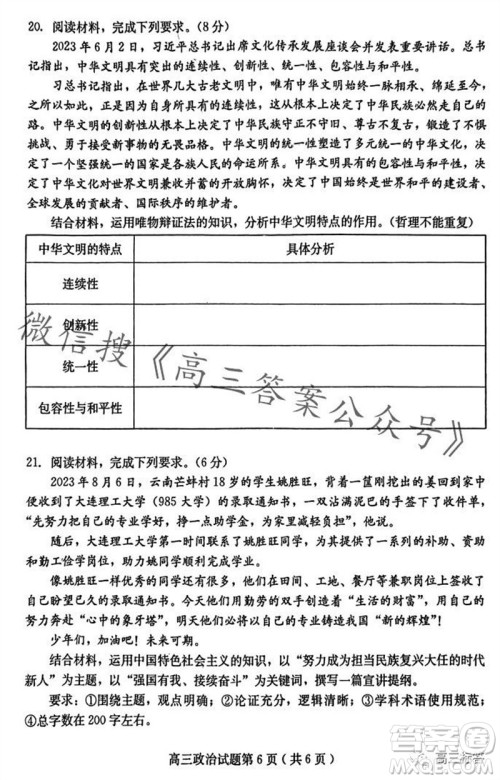 20. 阅读材料，完成下列要求。(8分)
2023年6月2日，习近平总书记出席文化传承发展座谈会并发表重要讲话。总书
记指出，中华文明具有突出的连续性、创新性、统一性、包容性与和平性。
习总书记指出，在世界几大文明古国中，唯有中华文明始终一脉相承、绵延至今，
中华文明的连续性，从根本上决定了中华民族必然走自己的路。中华文明具有突出的创
新性，从根本上决定了中华民族守正不守旧、尊古不复古，决定了中华民族不惧
挑战、勇于接受新事物的无畏品格。中华文明的统一性塑造了多元统一的中华文化，决
定了一个坚强统一的国家是各族人民的命运所系。中华文明具有的包容性与和平性，
决定了中华文化对世界文明兼收并蓄的开放胸怀，决定了中国始终是世界和平的建设者、
全球发展的贡献者、国际秩序的维护者。
结合材料，运用唯物辩证法的知识，分析中华文明特点的作用。(哲理不能重复)
中华文明的特点 具体分析
连续性
创新性
统一性
包容性与和平性
微信搜《高三答案公众号》
21. 阅读材料，完成下列要求。(6分)
2023年8月6日，云南芒蚌村18岁的学生姚胜旺，背着一筐刚挖的姜回到家中
便收到了大连理工大学(985大学)的录取通知书，一双沾满泥巴的手签下了收件单。
“先努力把自己的专业学好，接下来再为家乡，为国家贡献自己的一份力量。”
随后，大连理工大学第一时间联系了姚胜旺同学，并为其提供了一系列的补助、资助
和勤工俭学岗位，助力姚胜旺同学顺利完成学业。
像姚胜旺一样优秀的同学还有很多，他们在田间、工地、餐厅等兼职中收获了
期望已久的录取通知书。他们用勤劳的双手创造“生活的财富”，也即将用勤劳
的双手奔赴“心中的象牙塔”，明天也必将会用自己的专业铸造祖国“新的辉煌”！
少年们，加油吧！未来可期。
结合材料，运用中国特色社会主义的知识，以“努力成为担当民族复兴大任的时代
新人”为主题，以“有本领、有担当、接续奋斗”为关键词，撰写一篇宣讲提纲。
要求：①围绕主题，观点明确；②论证充分，逻辑清晰；③学科术语使用规范；
④总字数在200字左右。
高三政治试题第6页(共6页)
高三标答